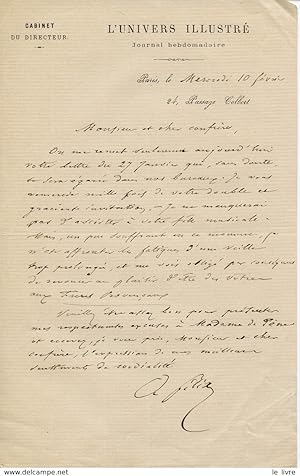 CABINET
DU DIRECTEUR
L'UNIVERS ILLUSTRÉ
Journal hebdomadaire
Paris, le Mercredi 10 février
24, Passage Colbert
Monsieur et cher confrère,
On me remet seulement aujourd'hui
votre lettre du 27 Janvier qui, sans doute
égarée dans nos bureaux. Je vous
remercie mille fois de votre double et
gracieuse invitation. Je ne manquerai
pas d'assister à votre fête musicale.
Mais, un peu souffrant en ce moment, je
n'ose affronter les fatigues d'une veillée
trop prolongée, et me vois obligé par conséquent
de renoncer au plaisir d'être des vôtres
aux Frères Provençaux.
Veuillez être assez bon pour présenter
mes respectueuses excuses à Madame de
et recevez, je vous prie, Monsieur et cher
confrère, l'expression de mes meilleurs
sentiments de cordialité.
le livre